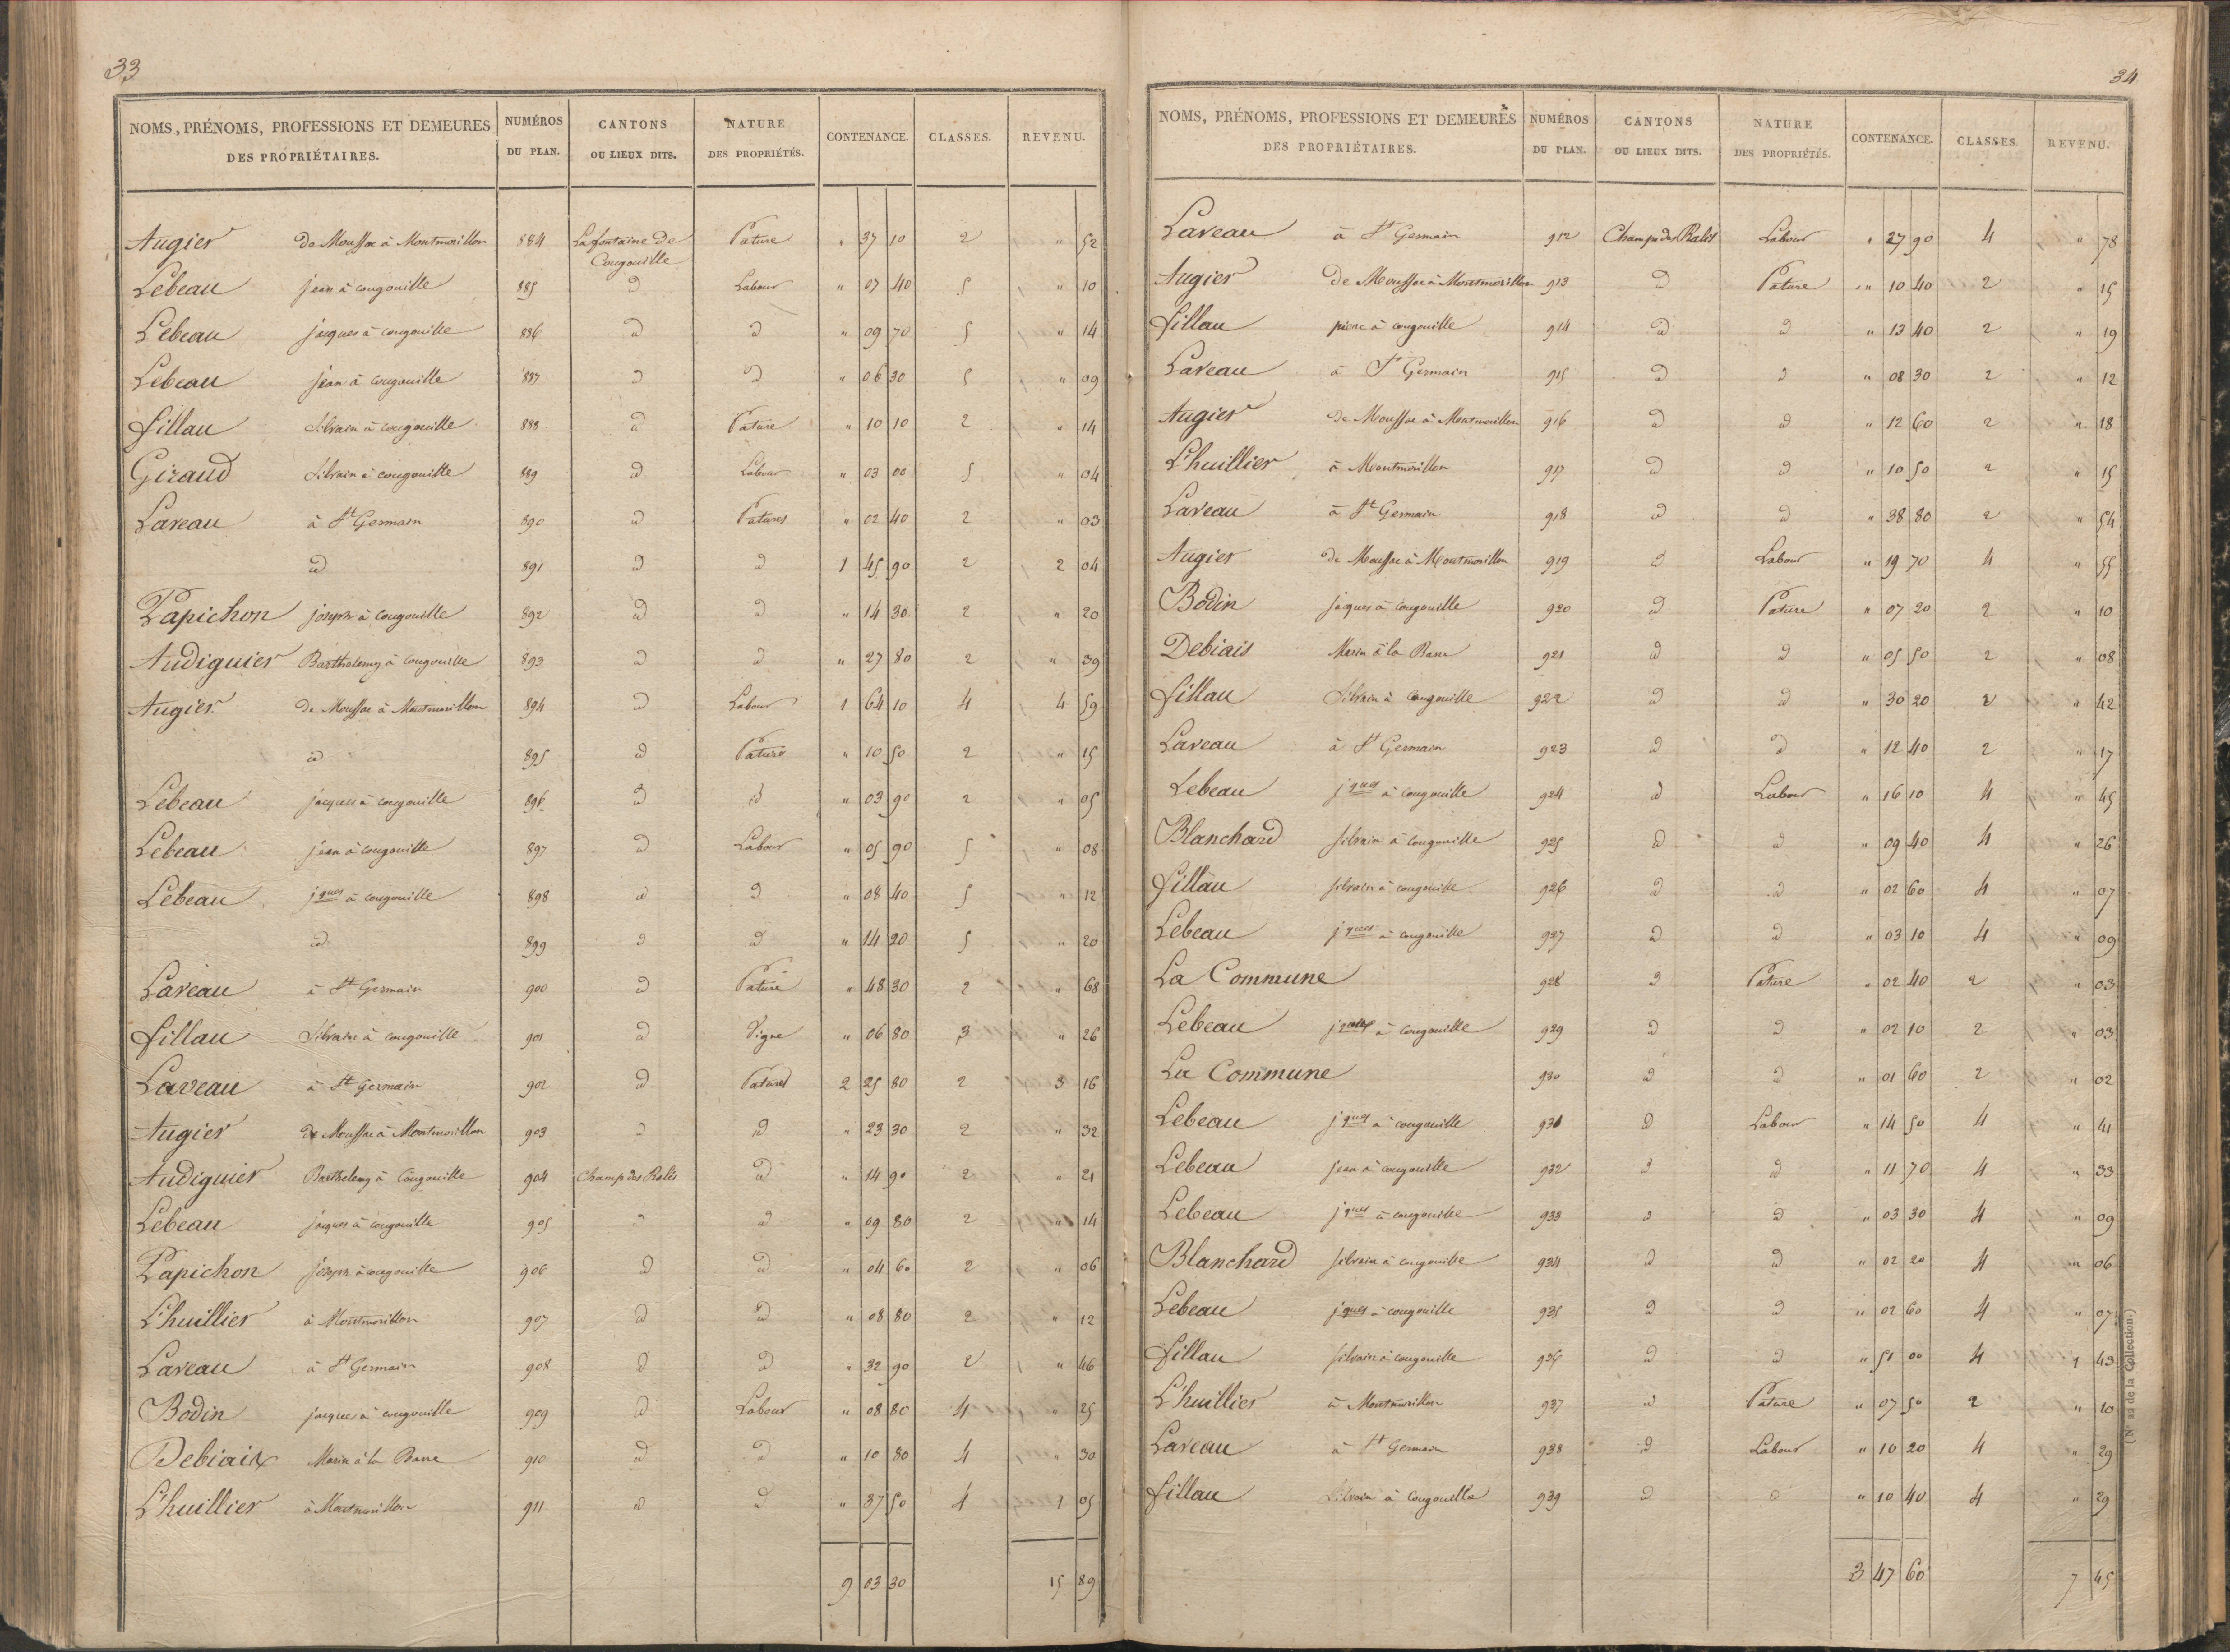 33
NOMS, PRÉNOMS, PROFESSIONS ET DEMEURES DES PROPRIÉTAIRES. NUMÉROS DU PLAN. CANTONS OU LIEUX DITS. NATURE DES PROPRIÉTÉS. CONTENANCE. CLASSES. REVENU.
Augier de Moussac à Montmorillon 884 La fontaine de Cougouille Pature " 37 10 2 " 52
Lebeau jean à cougouille 885 d Labour " 07 40 5 " 10
Lebeau jaques à cougouille 886 d d " 09 70 5 " 14
Lebeau jean à cougouille 887 d d " 06 30 5 " 09
fillau Silvain à cougouille 888 d Pature " 10 10 2 " 14
Giraud Silvain à cougouille 889 d Labour " 03 00 5 " 04
Laveau à St Germain 890 d Patures " 02 40 2 " 03
id 891 d d 1 45 90 2 2 04
Papichon joseph à Cougouille 892 d d " 14 30 2 " 20
Audiguier Barthelemy à Cougouille 893 d d " 27 80 2 " 39
Augier de Moussac à Montmorillon 894 d Labour 1 64 10 4 4 59
id 895 d Pature " 10 50 2 " 15
Lebeau jacques à cougouille 896 d d " 03 90 2 " 05
Lebeau jean à cougouille 897 d Labour " 05 90 5 " 08
Lebeau jques à cougouille 898 d d " 08 40 5 " 12
id 899 d d " 14 20 5 " 20
Laveau à St Germain 900 d Pature " 48 30 2 " 68
fillau Silvain à cougouille 901 d Vigne " 06 80 3 " 26
Laveau à St Germain 902 d Patures 2 25 80 2 3 16
Augier de Moussac à Montmorillon 903 d d " 23 30 2 " 32
Audiguier Barthelemy à Cougouille 904 Champ des Ralis d " 14 90 2 " 21
Lebeau jaques à cougouille 905 d d " 09 80 2 " 14
Papichon joseph à cougouille 906 d d " 04 60 2 " 06
L'huillier à Montmorillon 907 d d " 08 80 2 " 12
Laveau à St Germain 908 d d " 32 90 2 " 46
Bodin jacques à cougouille 909 d Labour " 08 80 4 " 25
Debiais Marin à la Barre 910 d d " 10 80 4 " 30
L'huillier à Montmorillon 911 d d " 37 50 4 1 05
9 03 30 15 89
34
NOMS, PRÉNOMS, PROFESSIONS ET DEMEURES DES PROPRIÉTAIRES. NUMÉROS DU PLAN. CANTONS OU LIEUX DITS. NATURE DES PROPRIÉTÉS. CONTENANCE. CLASSES. REVENU.
Laveau à St Germain 912 Champ des Ralis Labour " 27 90 4 " 78
Augier de Moussac à Montmorillon 913 d Pature " 10 40 2 " 15
fillau pierre à cougouille 914 d d " 13 40 2 " 19
Laveau à St Germain 915 d d " 08 30 2 " 12
Augier de Moussac à Montmorillon 916 d d " 12 60 2 " 18
L'huillier à Montmorillon 917 d d " 10 50 2 " 15
Laveau à St Germain 918 d d " 38 80 2 " 54
Augier de Moussac à Montmorillon 919 d Labour " 19 70 4 " 55
Bodin jaques à Cougouille 920 d Pature " 07 20 2 " 10
Debiais Marin à la Barre 921 d d " 05 50 2 " 08
fillau Silvain à Cougouille 922 d d " 30 20 2 " 42
Laveau à St Germain 923 d d " 12 40 2 " 17
Lebeau jques à cougouille 924 d Labour " 16 10 4 " 45
Blanchard silvain à cougouille 925 d d " 09 40 4 " 26
fillau silvain à cougouille 926 d d " 02 60 4 " 07
Lebeau jques à cougouille 927 d d " 03 10 4 " 09
La Commune 928 d Pature " 02 40 2 " 03
Lebeau jques à cougouille 929 d d " 02 10 2 " 03
La Commune 930 d d " 01 60 2 " 02
Lebeau jques à cougouille 931 d Labour " 14 50 4 " 41
Lebeau jean à cougouille 932 d d " 11 70 4 " 33
Lebeau jques à cougouille 933 d d " 03 30 4 " 09
Blanchard silvain à cougouille 934 d d " 02 20 4 " 06
Lebeau jques à cougouille 935 d d " 02 60 4 " 07
fillau silvain à cougouille 936 d d " 51 00 4 1 43
L'huillier à Montmorillon 937 d Pature " 07 50 2 " 10
Laveau à St Germain 938 d Labour " 10 20 4 " 29
fillau Silvain à Cougouille 939 d d " 10 40 4 " 29
3 47 60 7 45
(N° 22 de la Collection.)